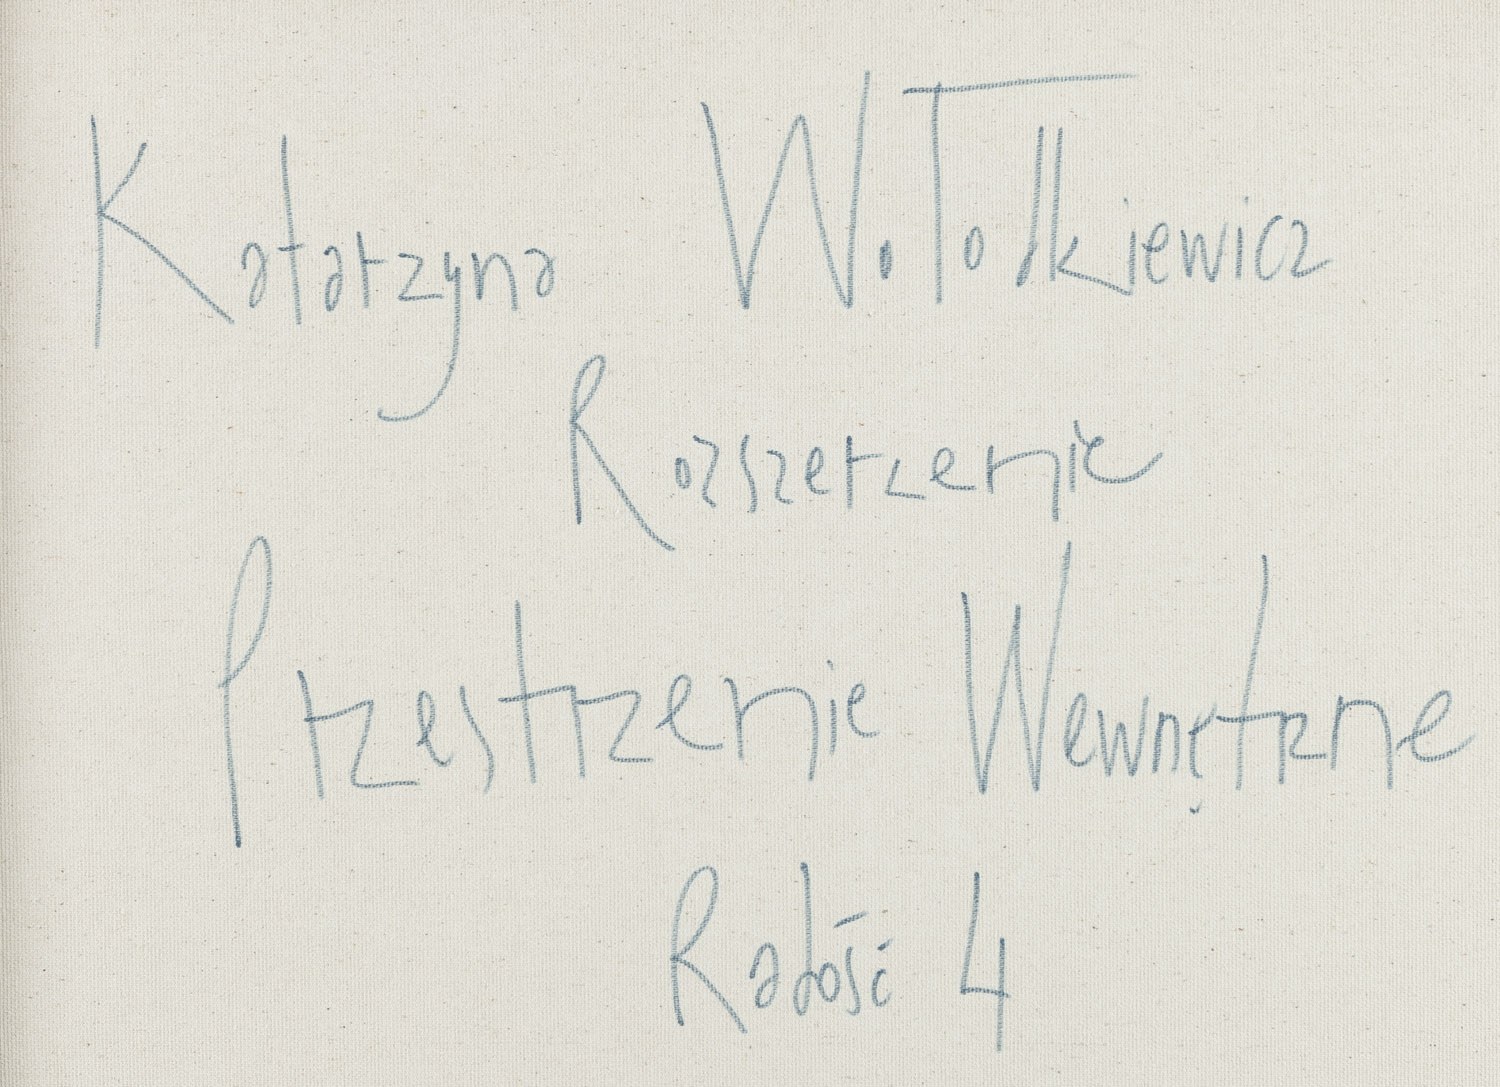 Katarzyna Wołodkiewicz
Rozszerzenie
Przestrzenie Wewnętrzne
Radość 4